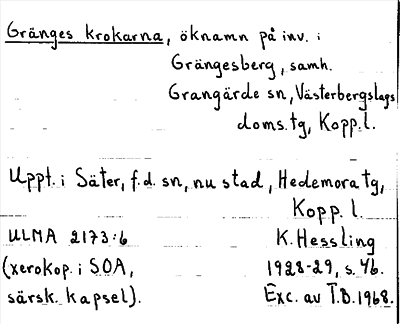 Gränges krokarna, öknamn på inv. i
Grängesberg, samh.
Grangärde sn, Västerbergslags
doms.tg, Kopp.l.
Uppt. i Säter, f.d. sn, nu stad, Hedemora tg,
Kopp. l.
ULMA 2173:6
K. Hessling
(xerokop. i SOA,
1928-29, s. 46.
särsk. kapsel).
Exc. av T.B. 1968.